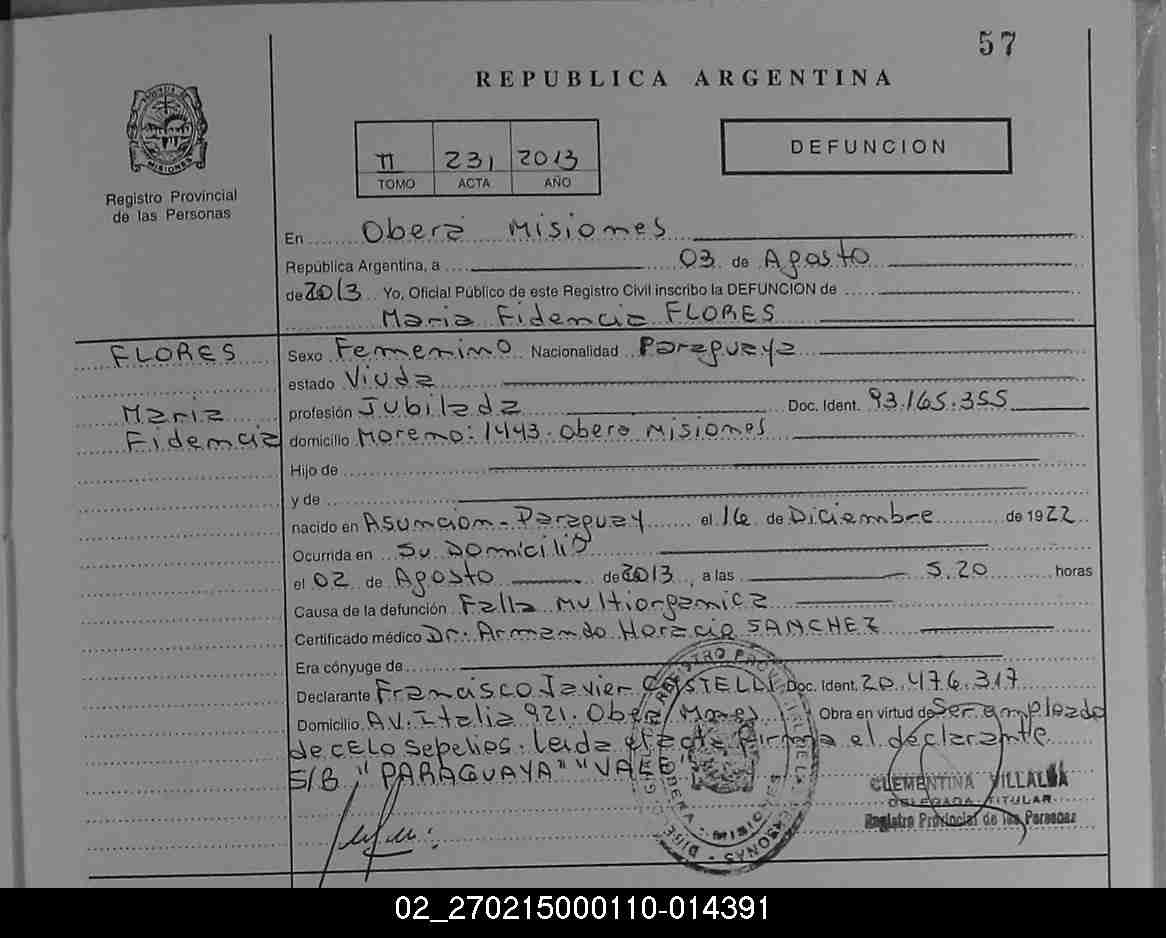 57
REPUBLICA ARGENTINA
PROVINCIA DE
MISIONES
Registro Provincial
de las Personas
II 231 2013
TOMO ACTA AÑO
DEFUNCION
En Oberá Misiones
República Argentina, a 03 de Agosto
de 2013 Yo, Oficial Público de este Registro Civil inscribo la DEFUNCION de
Maria Fidencia FLORES
FLORES
Maria
Fidencia
Sexo Femenino Nacionalidad Paraguaya
estado Viuda
profesión Jubilada Doc. Ident. 93.165.355
domicilio Moreno: 1443. Obera Misiones
Hijo de
y de
nacido en Asuncion - Paraguay el 16 de Diciembre de 1922
Ocurrida en Su Domicilio
el 02 de Agosto de 2013, a las 5.20 horas
Causa de la defunción Falla Multiorganica
Certificado médico Dr. Armando Horacio SANCHEZ
Era cónyuge de
Declarante Francisco Javier CASTELLI Doc. Ident. 20.476.317
Domicilio AV. Italia 921. Obera Mnes Obra en virtud de Ser empleado
de CELO Sepelios. Leida el acta firma el declarante
S/B "PARAGUAYA" "VALE"
CLEMENTINA VILLALBA
DELEGADA TITULAR
Registro Provincial de las Personas
02_270215000110-014391